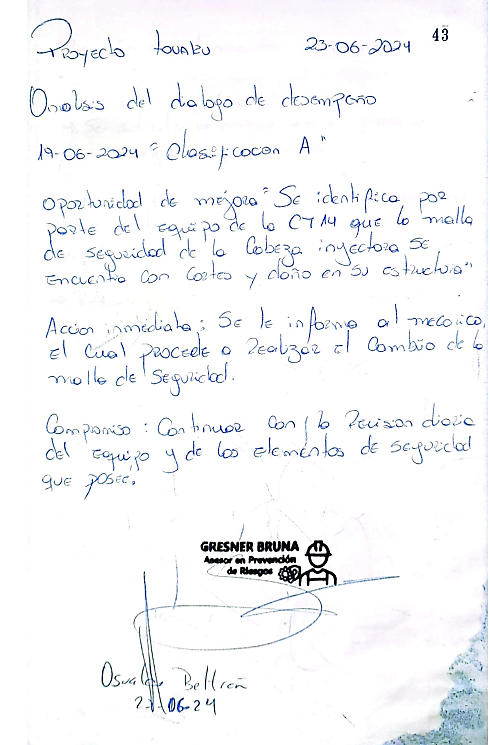 43
Proyecto
23-06-2024
Analisis del dialogo de desempeño
19-06-2024 "Clasificacion A"
Oportunidad de mejora "Se identifica por
parte del equipo de la CT14 que la malla
de seguridad de la Cabeza inyectora se
encuentra con cortes y daño en su estructura"
Accion inmediata: Se le informa al mecanico,
el cual procede a realizar el cambio de la
malla de seguridad.
Compromiso: Continuar con la revision diaria
del equipo y de los elementos de seguridad
que posee.
GRESNER BRUNA
Asesor en Prevención
de Riesgos
Osvaldo Beltrán
06-24